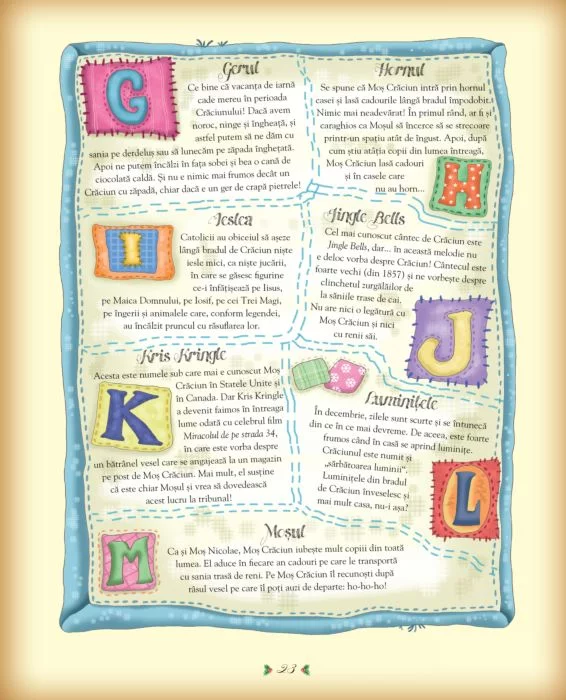 G
Gerul
Ce bine că vacanța de iarnă
cade mereu în perioada
Crăciunului! Dacă avem
noroc, ninge și îngheață, și
astfel putem să ne dăm cu
sania pe derdeluș sau să lunecăm pe zăpada înghețată.
Apoi ne putem încălzi în fața sobei și bea o cană de
ciocolată caldă. Și nu e nimic mai frumos decât un
Crăciun cu zăpadă, chiar dacă e un ger de crapă pietrele!
Hornul
Se spune că Moș Crăciun intră prin hornul
casei și lasă cadourile lângă bradul împodobit.
Nimic mai neadevărat! În primul rând, ar fi și
caraghios ca Moșul să încerce să se strecoare
printr-un spațiu atât de îngust. Apoi, după
cum știu atâția copii din lumea întreagă,
Moș Crăciun lasă cadouri
și în casele care
nu au horn...
H
I
Ieslea
Catolicii au obiceiul să așeze
lângă bradul de Crăciun niște
iesle mici, ca niște jucării,
în care se găsesc figurine
ce-i înfățișează pe Iisus,
pe Maica Domnului, pe Iosif, pe cei Trei Magi,
pe îngerii și animalele care, conform legendei,
au încălzit pruncul cu răsuflarea lor.
Jingle Bells
Cel mai cunoscut cântec de Crăciun este
Jingle Bells, dar... în această melodie nu
e deloc vorba despre Crăciun! Cântecul este
foarte vechi (din 1857) și ne vorbește despre
clinchetul zurgălăilor de
la săniile trase de cai.
Nu are nici o legătură cu
Moș Crăciun și nici
cu renii săi.
J
Kris Kringle
Acesta este numele sub care mai e cunoscut Moș
Crăciun în Statele Unite și
în Canada. Dar Kris Kringle
a devenit faimos în întreaga
lume odată cu celebrul film
Miracolul de pe strada 34,
în care este vorba despre
un bătrânel vesel care se angajează la un magazin
pe post de Moș Crăciun. Mai mult, el susține
că este chiar Moșul și vrea să dovedească
acest lucru la tribunal!
K
Luminițele
În decembrie, zilele sunt scurte și se întunecă
din ce în ce mai devreme. De aceea, este foarte
frumos când în casă se aprind luminițe.
Crăciunul este numit și
„sărbătoarea luminii“.
Luminițele din bradul
de Crăciun înveselesc și
mai mult casa, nu-i așa?
L
M
Moșul
Ca și Moș Nicolae, Moș Crăciun iubește mult copiii din toată
lumea. El aduce în fiecare an cadouri pe care le transportă
cu sania trasă de reni. Pe Moș Crăciun îl recunoști după
râsul vesel pe care îl poți auzi de departe: ho-ho-ho!
23